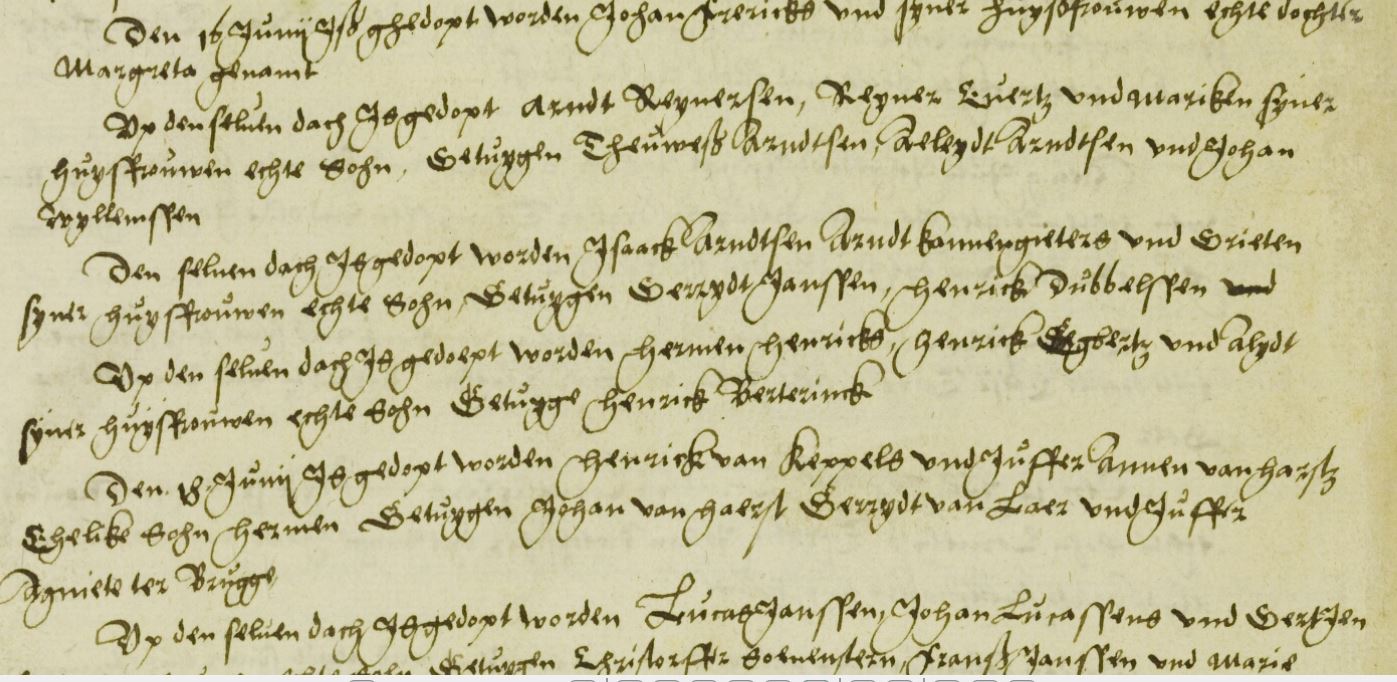 Den 16 Junij Iß ghedopt worden Johan Frericks und syner huyßfrouwen echte dochter
Margreta genamt
Up den seluen dach Is gedopt Arndt Reynersen, Reyner Euertz und Mariken syner
huysfrouwen echte Sohn, Getuygen Theuweß Arndtsen, Aeleydt Arndtsen und Johan
Wyllemssen
Den seluen dach Is gedopt worden Isaack Arndtsen Arndt kannengieters und Grieten
syner huysfrouwen echte Sohn, Getuygen Gerrydt Janssen, Henrick Dubbelssen und
Up den seluen dach Is gedoept worden Hermen Henricks, Henrick Egbertz und Alydt
syner huysfrouwen echte Sohn Getuyge Henrick Berterinck
Den 18 Junij Is gedopt worden Henrick van Keppels und Juffer Annen van Harstz
Ehelike Sohn Hermen Getuygen Johan van Haerst Gerrydt van Laer und Juffer
Agniete ter Brugge
Up den seluen dach Is gedopt worden Lucas Janssen, Johan Lucassens und Gertjen
echte Sohn Getuygen Christorffer Soenenstern, Franß Janssen und Marie